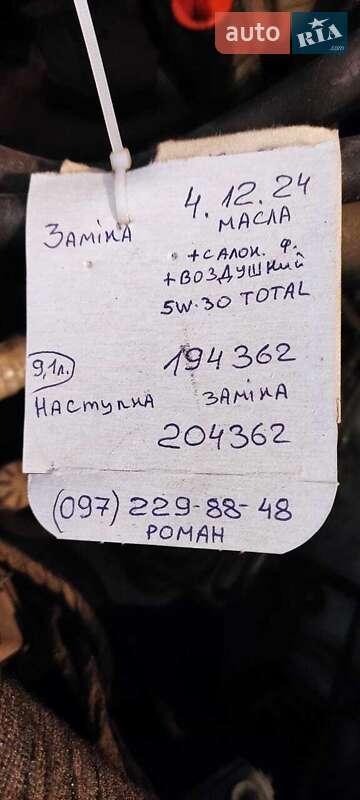 auto RIA.com
4.12.24
Заміна масла
+ салон. ф.
+ воздушний
5W-30 TOTAL
9,1л. 194362
Наступна заміна
204362
(097) 229-88-48
Роман